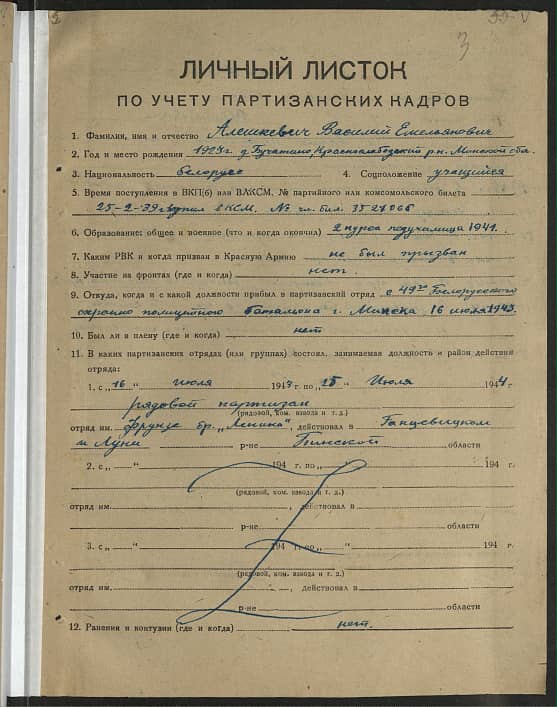 3
ЛИЧНЫЙ ЛИСТОК
ПО УЧЕТУ ПАРТИЗАНСКИХ КАДРОВ
1. Фамилия, имя и отчество Алешкевич Василий Емельянович
2. Год и место рождения 1924г. д. Бучатино, Краснослободский р-н. Минской обл.
3. Национальность белорус 4. Соцположение учащийся
5. Время поступления в ВКП(б) или ВЛКСМ, № партийного или комсомольского билета
25-2-39г. вступил в КСМ. № чл. бил. 3527066
6. Образование: общее и военное (что и когда окончил) 2 курса педучилища 1941.
7. Каким РВК и когда призван в Красную Армию не был призван
8. Участие на фронтах (где и когда) нет.
9. Откуда, когда и с какой должности прибыл в партизанский отряд с 49го Белорусского
охранно полицейского батальона г. Минска 16 июля 1943.
10. Был ли в плену (где и когда) нет
11. В каких партизанских отрядах (или группах) состоял, занимаемая должность и район действия
отряда:
1. с „16“ июля 1943 г. по „15“ Июля 1944 г.
рядовой партизан
(рядовой, ком. взвода и т. д.)
отряд им. Фрунзе бр. „Ленина“, действовал в Ганцевицком
и Луни р-не Пинской области
2. с „ “ 194 г. по „ “ 194 г.
(рядовой, ком. взвода и т. д.)
отряд им. , действовал в
р-не области
3. с „ “ 194 г. по „ “ 194 г
(рядовой, ком. взвода и т. д.)
отряд им. , действовал в
р-не области
12. Ранения и контузии (где и когда) нет.